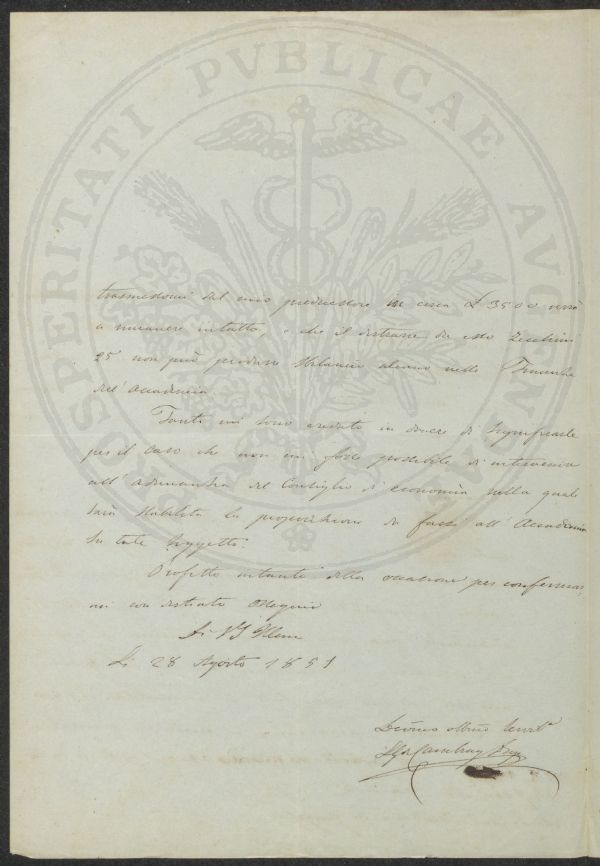 PROSPERITATI PVBLICAE AVGENDAE
trasmessomi dal mio predecessore in circa £ 3500 verrà
a rimanere intatto, e che il distrarre da esso Zecchini
25 non può produrre sbilancio alcuno nelle Finanze
dell'Accademia.
Tanto mi sono creduto in dovere di significarle
per il caso che non mi fosse possibile di intervenire
all'adunanza del Consiglio di economia nella quale
sarà stabilita la proposizione da farsi all'Accademia
su tale soggetto.
Profitto intanto della occasione per confermar
mi con distinto ossequio
Di VS Illma
Li 28 Agosto 1851
Devmo